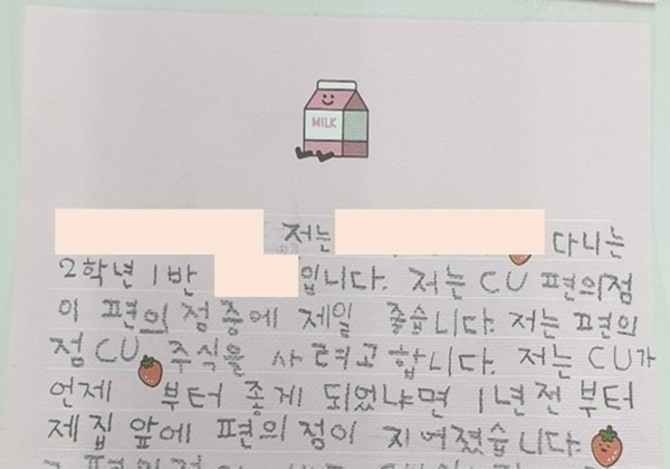 MILK
저는 다니는
2학년 1반 입니다. 저는 CU 편의점
이 편의점 중에 제일 좋습니다. 저는 편의
점 CU 주식을 사려고 합니다. 저는 CU가
언제 부터 좋게 되었냐면 1년 전 부터
제 집 앞에 편의점이 지어졌습니다.
편의점